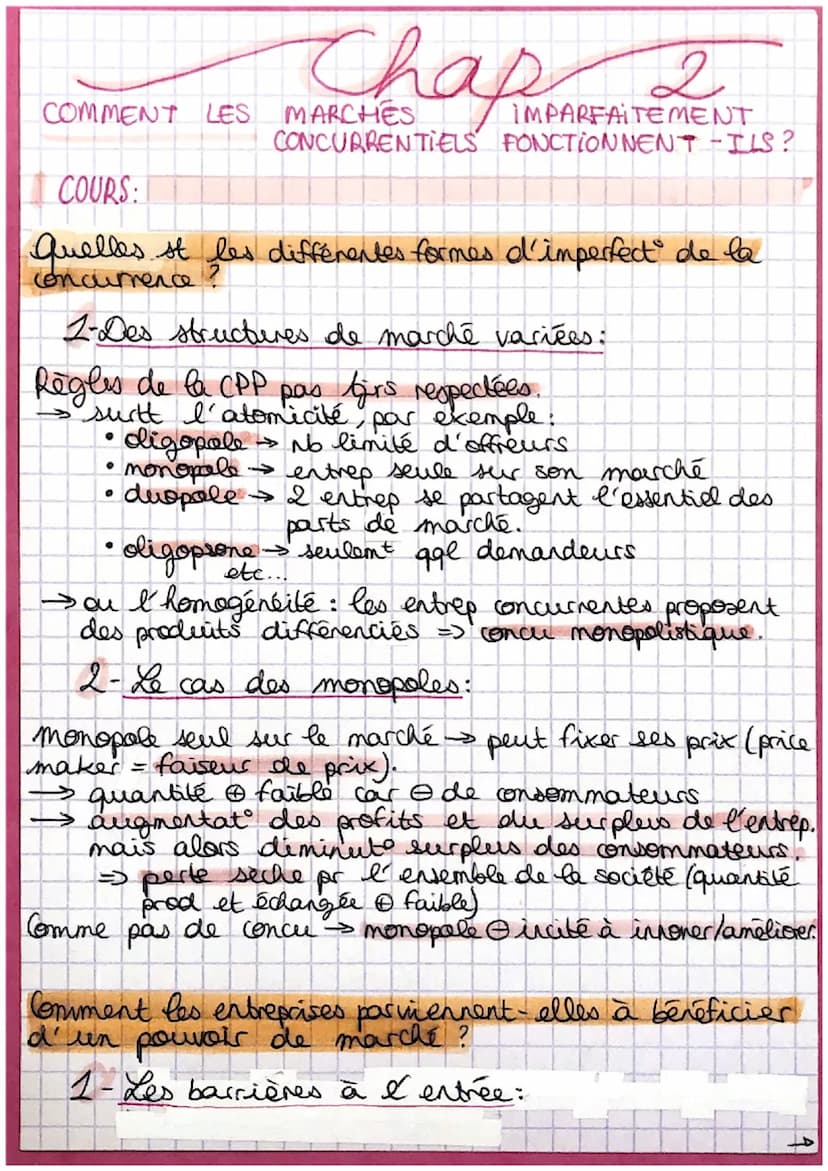 Chap 2
COMMENT LES MARCHÉS IMPARFAITEMENT
CONCURRENTIELS FONCTIONNENT-ILS ?
COURS:
Quelles st les différentes formes d'imperfect° de la
concurrence ?
1-Des structures de marché variées:
Règles de la CPP pas tjrs respectées.
→ surtt l'atomicité, par exemple:
• oligopole → Nb limité d'offreurs
• monopole → entrep seule sur son marché
• duopole → 2 entrep se partagent l'essentiel des
parts de marché.
• oligopsone → seulemt qql demandeurs
etc...
→ ou l'homogénéité : les entrep concurrentes proposent
des produits différenciés => concu monopolistique.
2- Le cas des monopoles:
Monopole seul sur le marché → peut fixer ses prix (price
maker = faiseur de prix).
→ quantité ⊕ faible car ⊖ de consommateurs
→ augmentat° des profits et du surplus de l'entrep.
mais alors diminut° surplus des consommateurs.
=> perte sèche pr l'ensemble de la société (quantité
prod et échangée ⊕ faible)
Comme pas de concu → monopole ⊖ incité à innover/améliorer.
Comment les entreprises parviennent-elles à bénéficier
d'un pouvoir de marché ?
1- Les barrières à l'entrée:
→